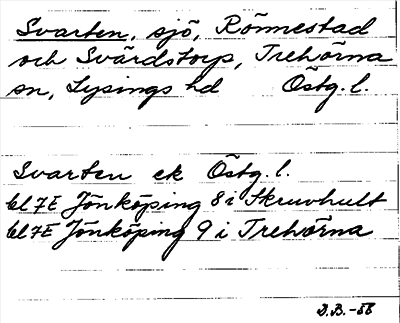 Svarten, sjö, Rönnestad
och Svärdstorp, Trehörna
sn, Lysings hd Östg. l.
Svarten ek Östg. l.
bl 7E Jönköping 8 i Skruvhult
bl 7E Jönköping 9 i Trehörna
D.B.-56